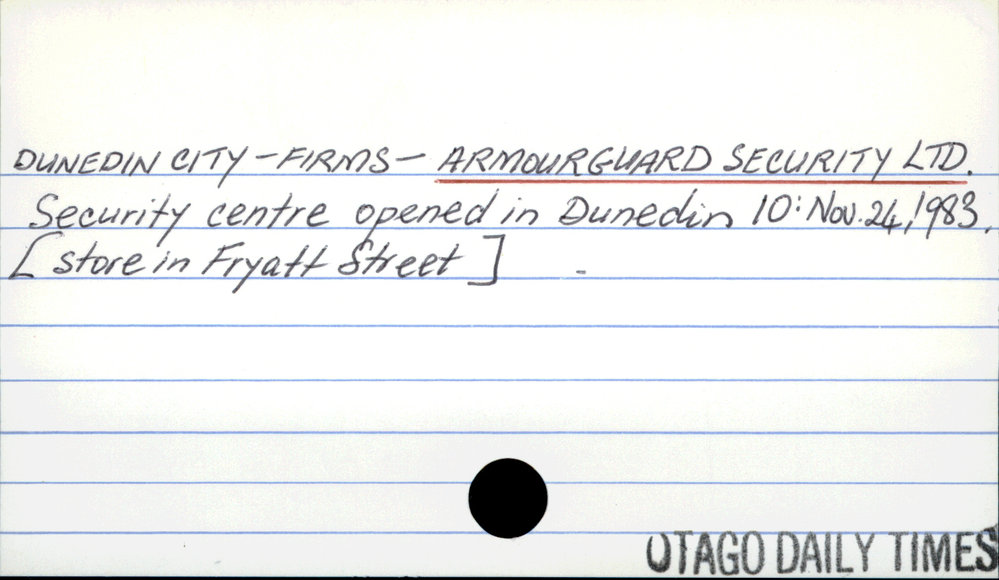 DUNEDIN CITY - FIRMS - ARMOURGUARD SECURITY LTD.
Security centre opened in Dunedin 10: Nov. 24, 1983.
[ store in Fryatt Street ] -
OTAGO DAILY TIMES